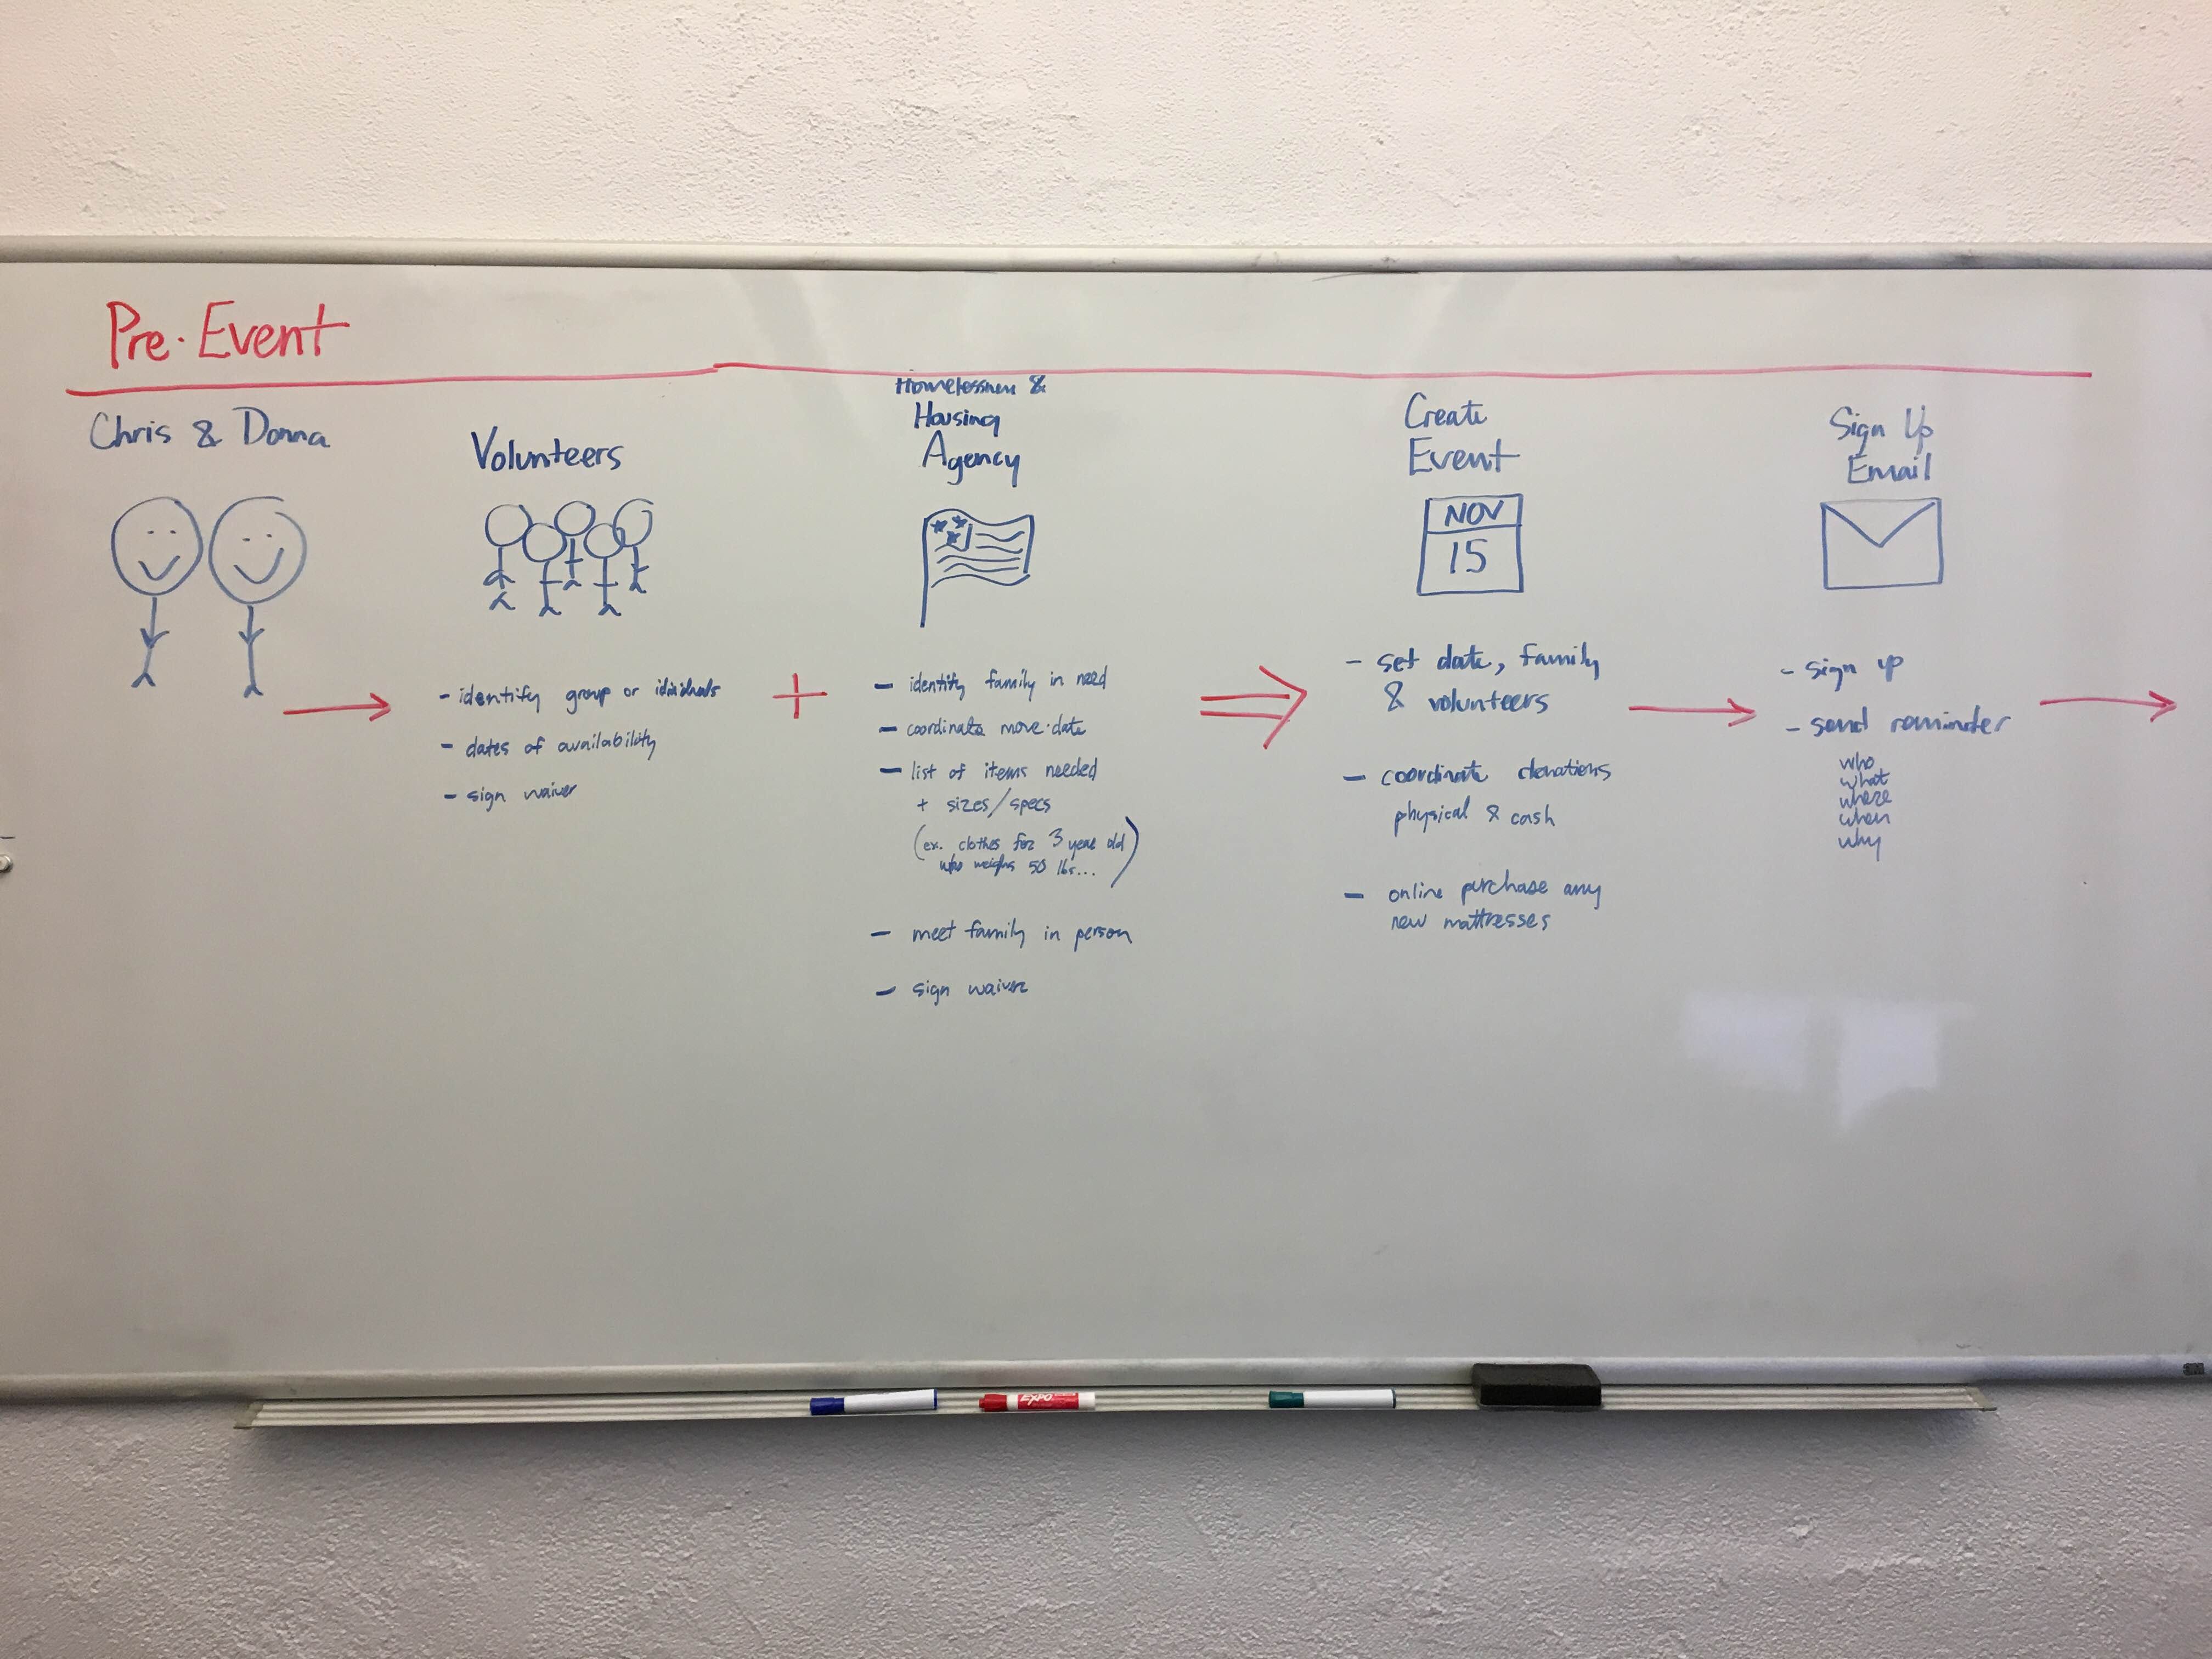 Pre-Event
Chris & Donna
Volunteers
- identify group or idividuals
- dates of availability
- sign waiver
+
Homelessness &
Housing
Agency
- identify family in need
- coordinate move-date
- list of items needed
+ sizes/specs
(ex. clothes for 3 year old
who weighs 50 lbs...)
- meet family in person
- sign waiver
Create
Event
NOV
15
- set date, family
& volunteers
- coordinate donations
physical & cash
- online purchase any
new mattresses
Sign Up
Email
- sign up
- send reminder
who
what
where
when
why
EXPO